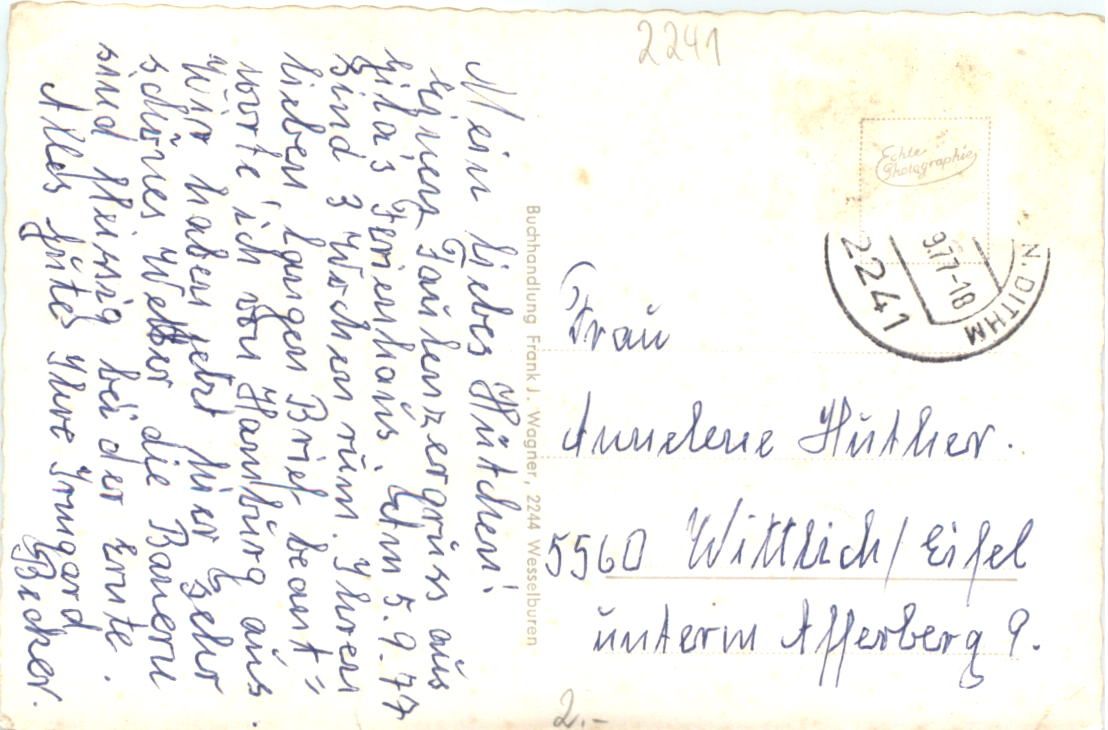 Mein liebes Hütchen!
Faulenzergrüss aus
Gila's Ferienhaus. Am 5.9.77
sind 3 Wochen rüm. Ihren
lieben langen Brief beant=
worte ich von Hambürg aüs.
Wir haben jetzt hier sehr
schönes Wetter die Bauern
sind fleissig bei der Ernte.
Alles Gute Ihre Irmgard
Becker.
Buchhandlung Frank J. Wagner, 2244 Wesselburen
2241
Echte
Photographie
2241
9.77-18
N. DITHM
Frau
Annelene Hüther.
5560 Wittlich/Eifel
ünterm Affenberg 9.
2.-